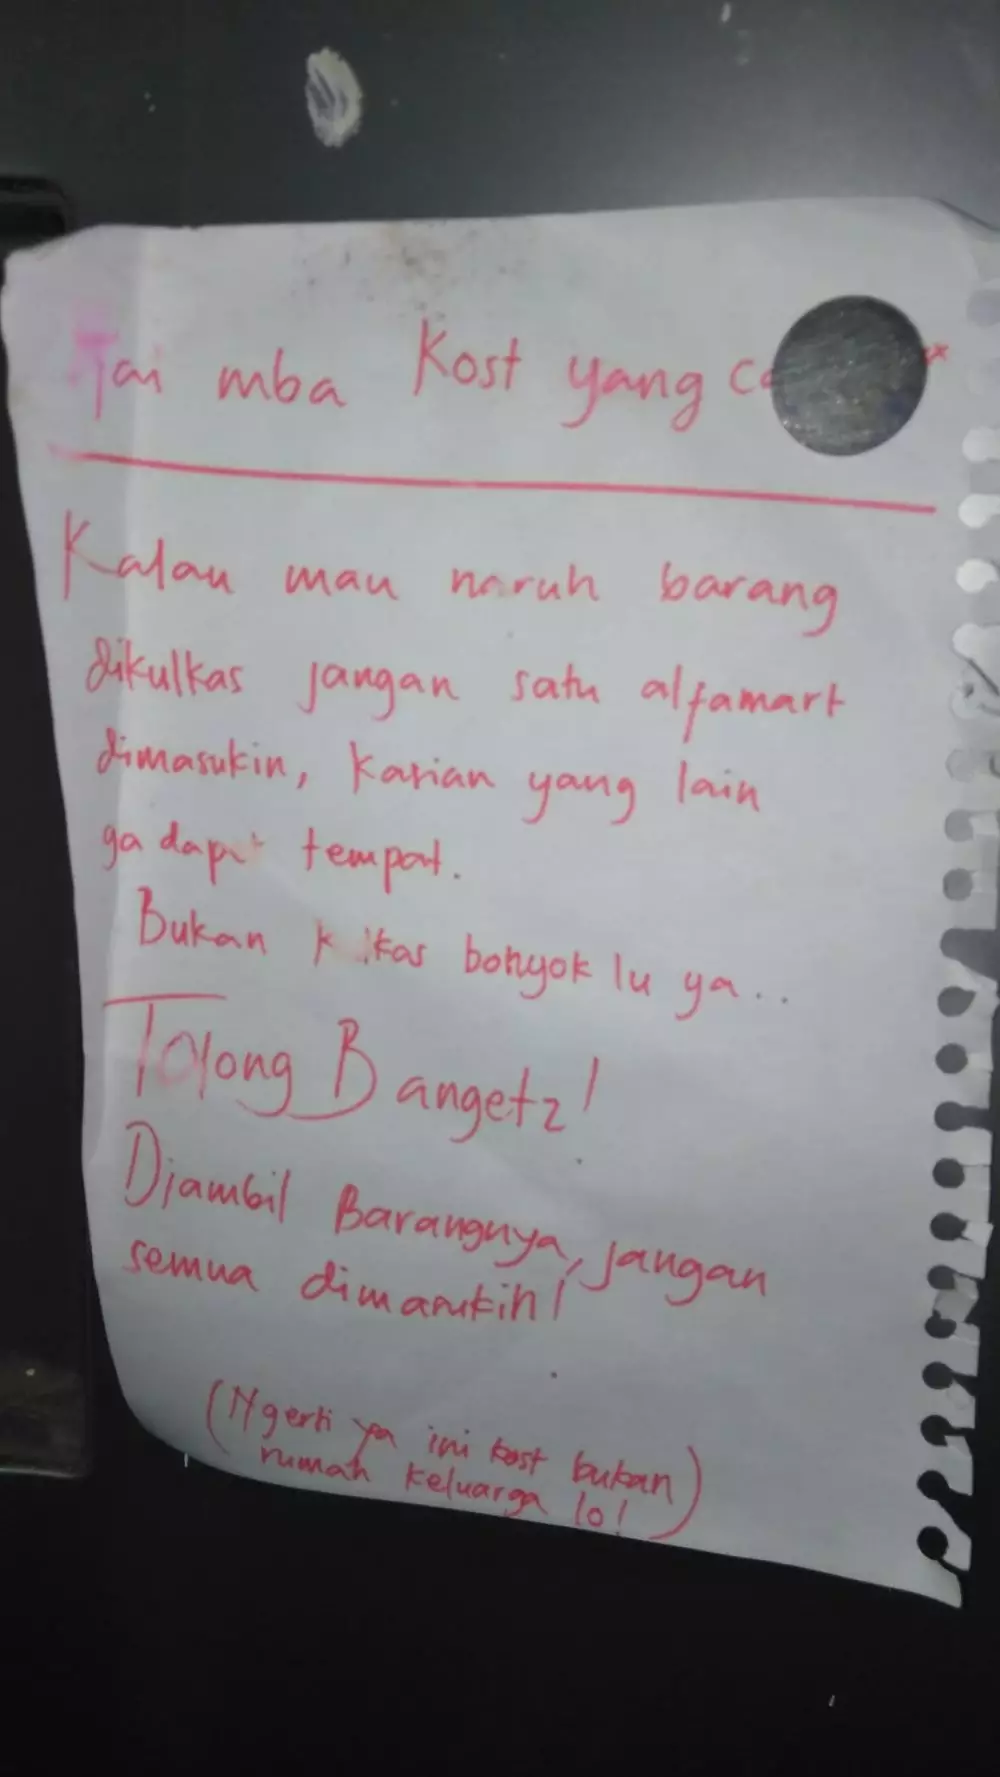 Tai mba Kost yang
Kalau mau naruh barang
dikulkas jangan satu alfamart
dimasukin, Kasian yang lain
ga dapat tempat.
Bukan kulkas bonyok lu ya..
Tolong Bangetz!
Diambil Barangnya, jangan
semua dimasukin!
(Ngerti ya ini kost bukan
rumah keluarga lo!)